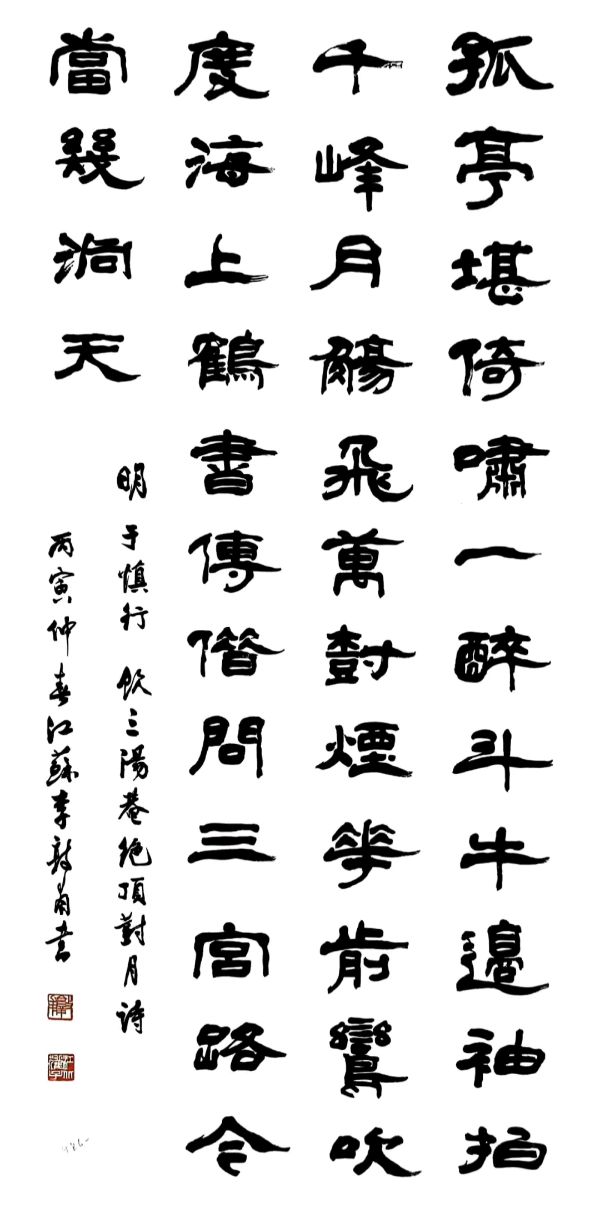 孤亭堪倚嘯一醉斗牛邊袖拍
千峰月觴飛萬樹煙花前鸞吹
度海上鶴書傳借問三宮路今
當幾洞天
明于慎行 飲三陽菴絶頂對月詩
丙寅仲春江蘇李敦甫書